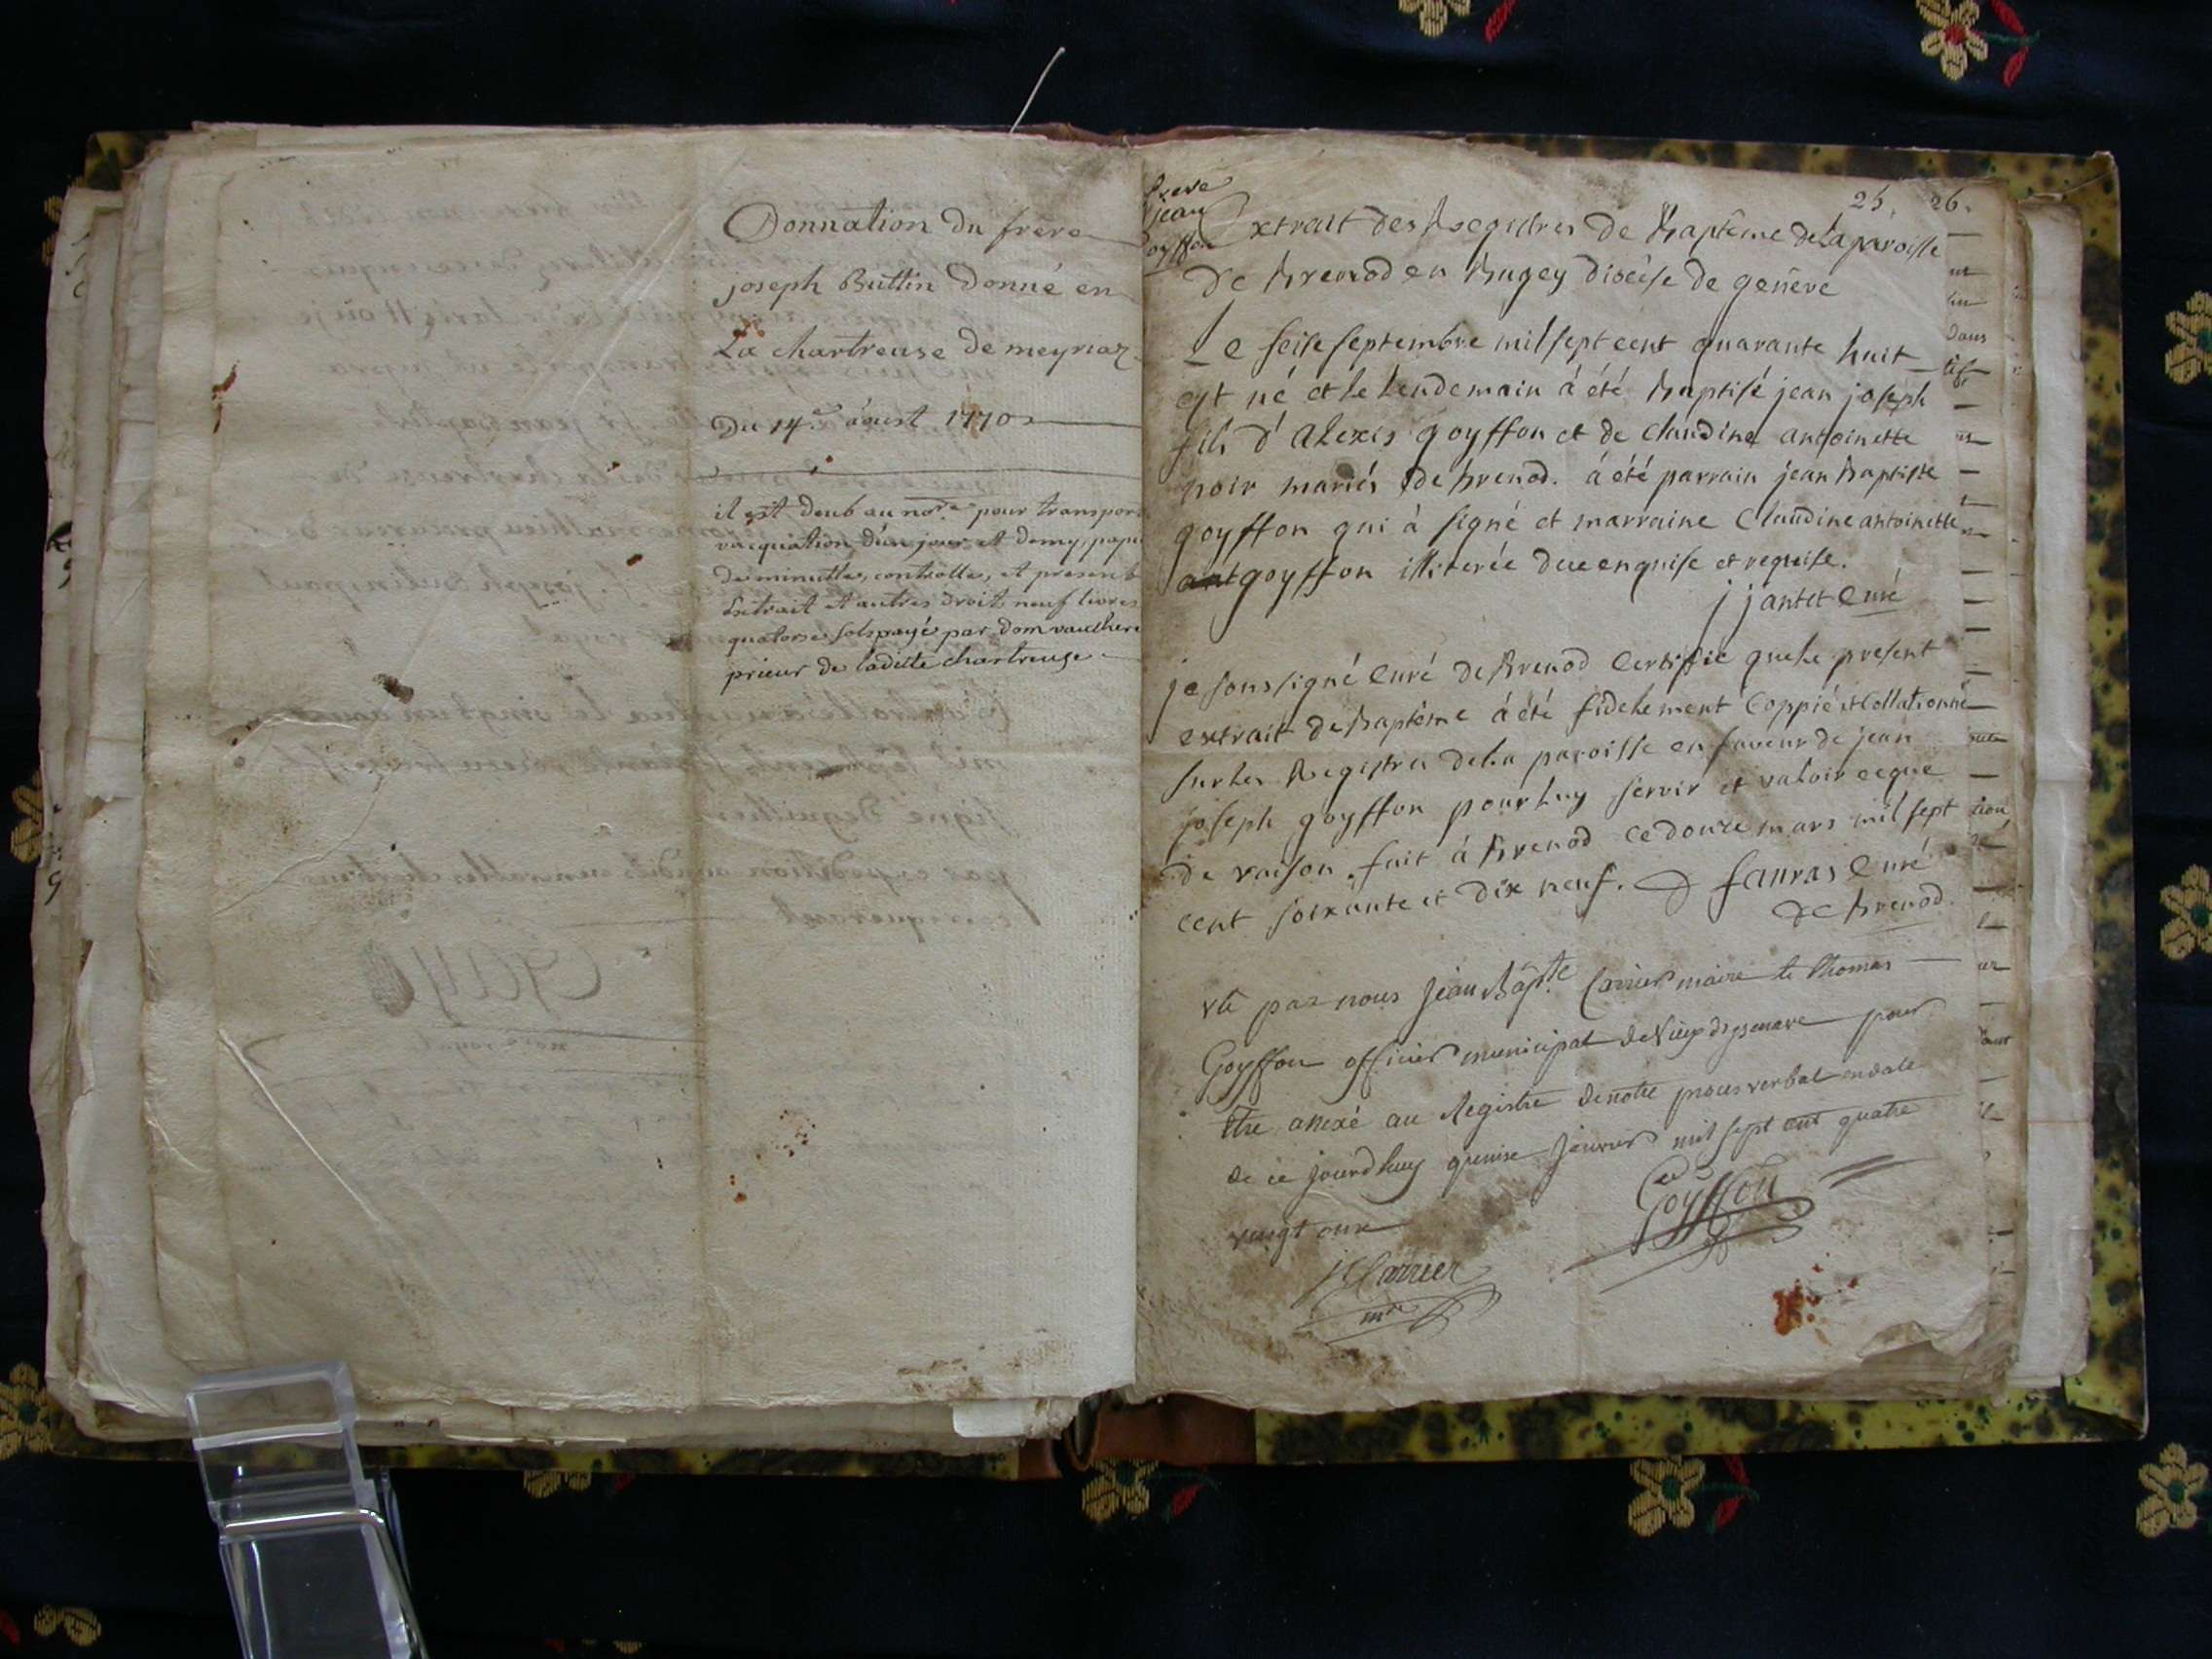 Donnation du frere
joseph Buttin donné en
La chartreuse de meyriaz
Du 14.e aoust 1770
il est deub au nore pour transport
vacquation d'un jour et demy, papie
de minuttes, controlle, et present
Extrait et autres droit neuf livres
quatorse sols payé par dom vaulhere
prieur de laditte chartreuse
frere
jean
Goyffon
25. 26.
Extrait des Registres de Baptême de La paroisse
de Brenod en Bugey diocèse de genève
Le seise septembre mil sept cent quarante huit
est né et le Lendemain à été Baptisé jean joseph
fils d'Alexis goyffon et de Claudine antoinette
noir mariés de Brenod. à été parrain jean Baptiste
goyffon qui à signé et marraine Claudine antoinette
goyffon illiterée due enquise et requise.
j jantet Curé
je soussigné Curé de Brenod Certifie que le present
extrait de Baptême à été fidelement Coppié et Collationné
sur les Registres de La paroisse en faveur de jean
joseph goyffon pour luy servir et valoir ce que
de raison. fait à Brenod ce douze mars mil sept
cent soixante et dix neuf. fauras Curé
de Brenod.
vû par nous Jean Bapte Carrier maire et Thomas
Goyffon officier municipal de Vieux dysenave pour
être anexé au Registre de notre procès verbal en date
de ce jourdhuy quinze janvier mil sept cent quatre
vingt onze
Goyffon
Carrier
mre